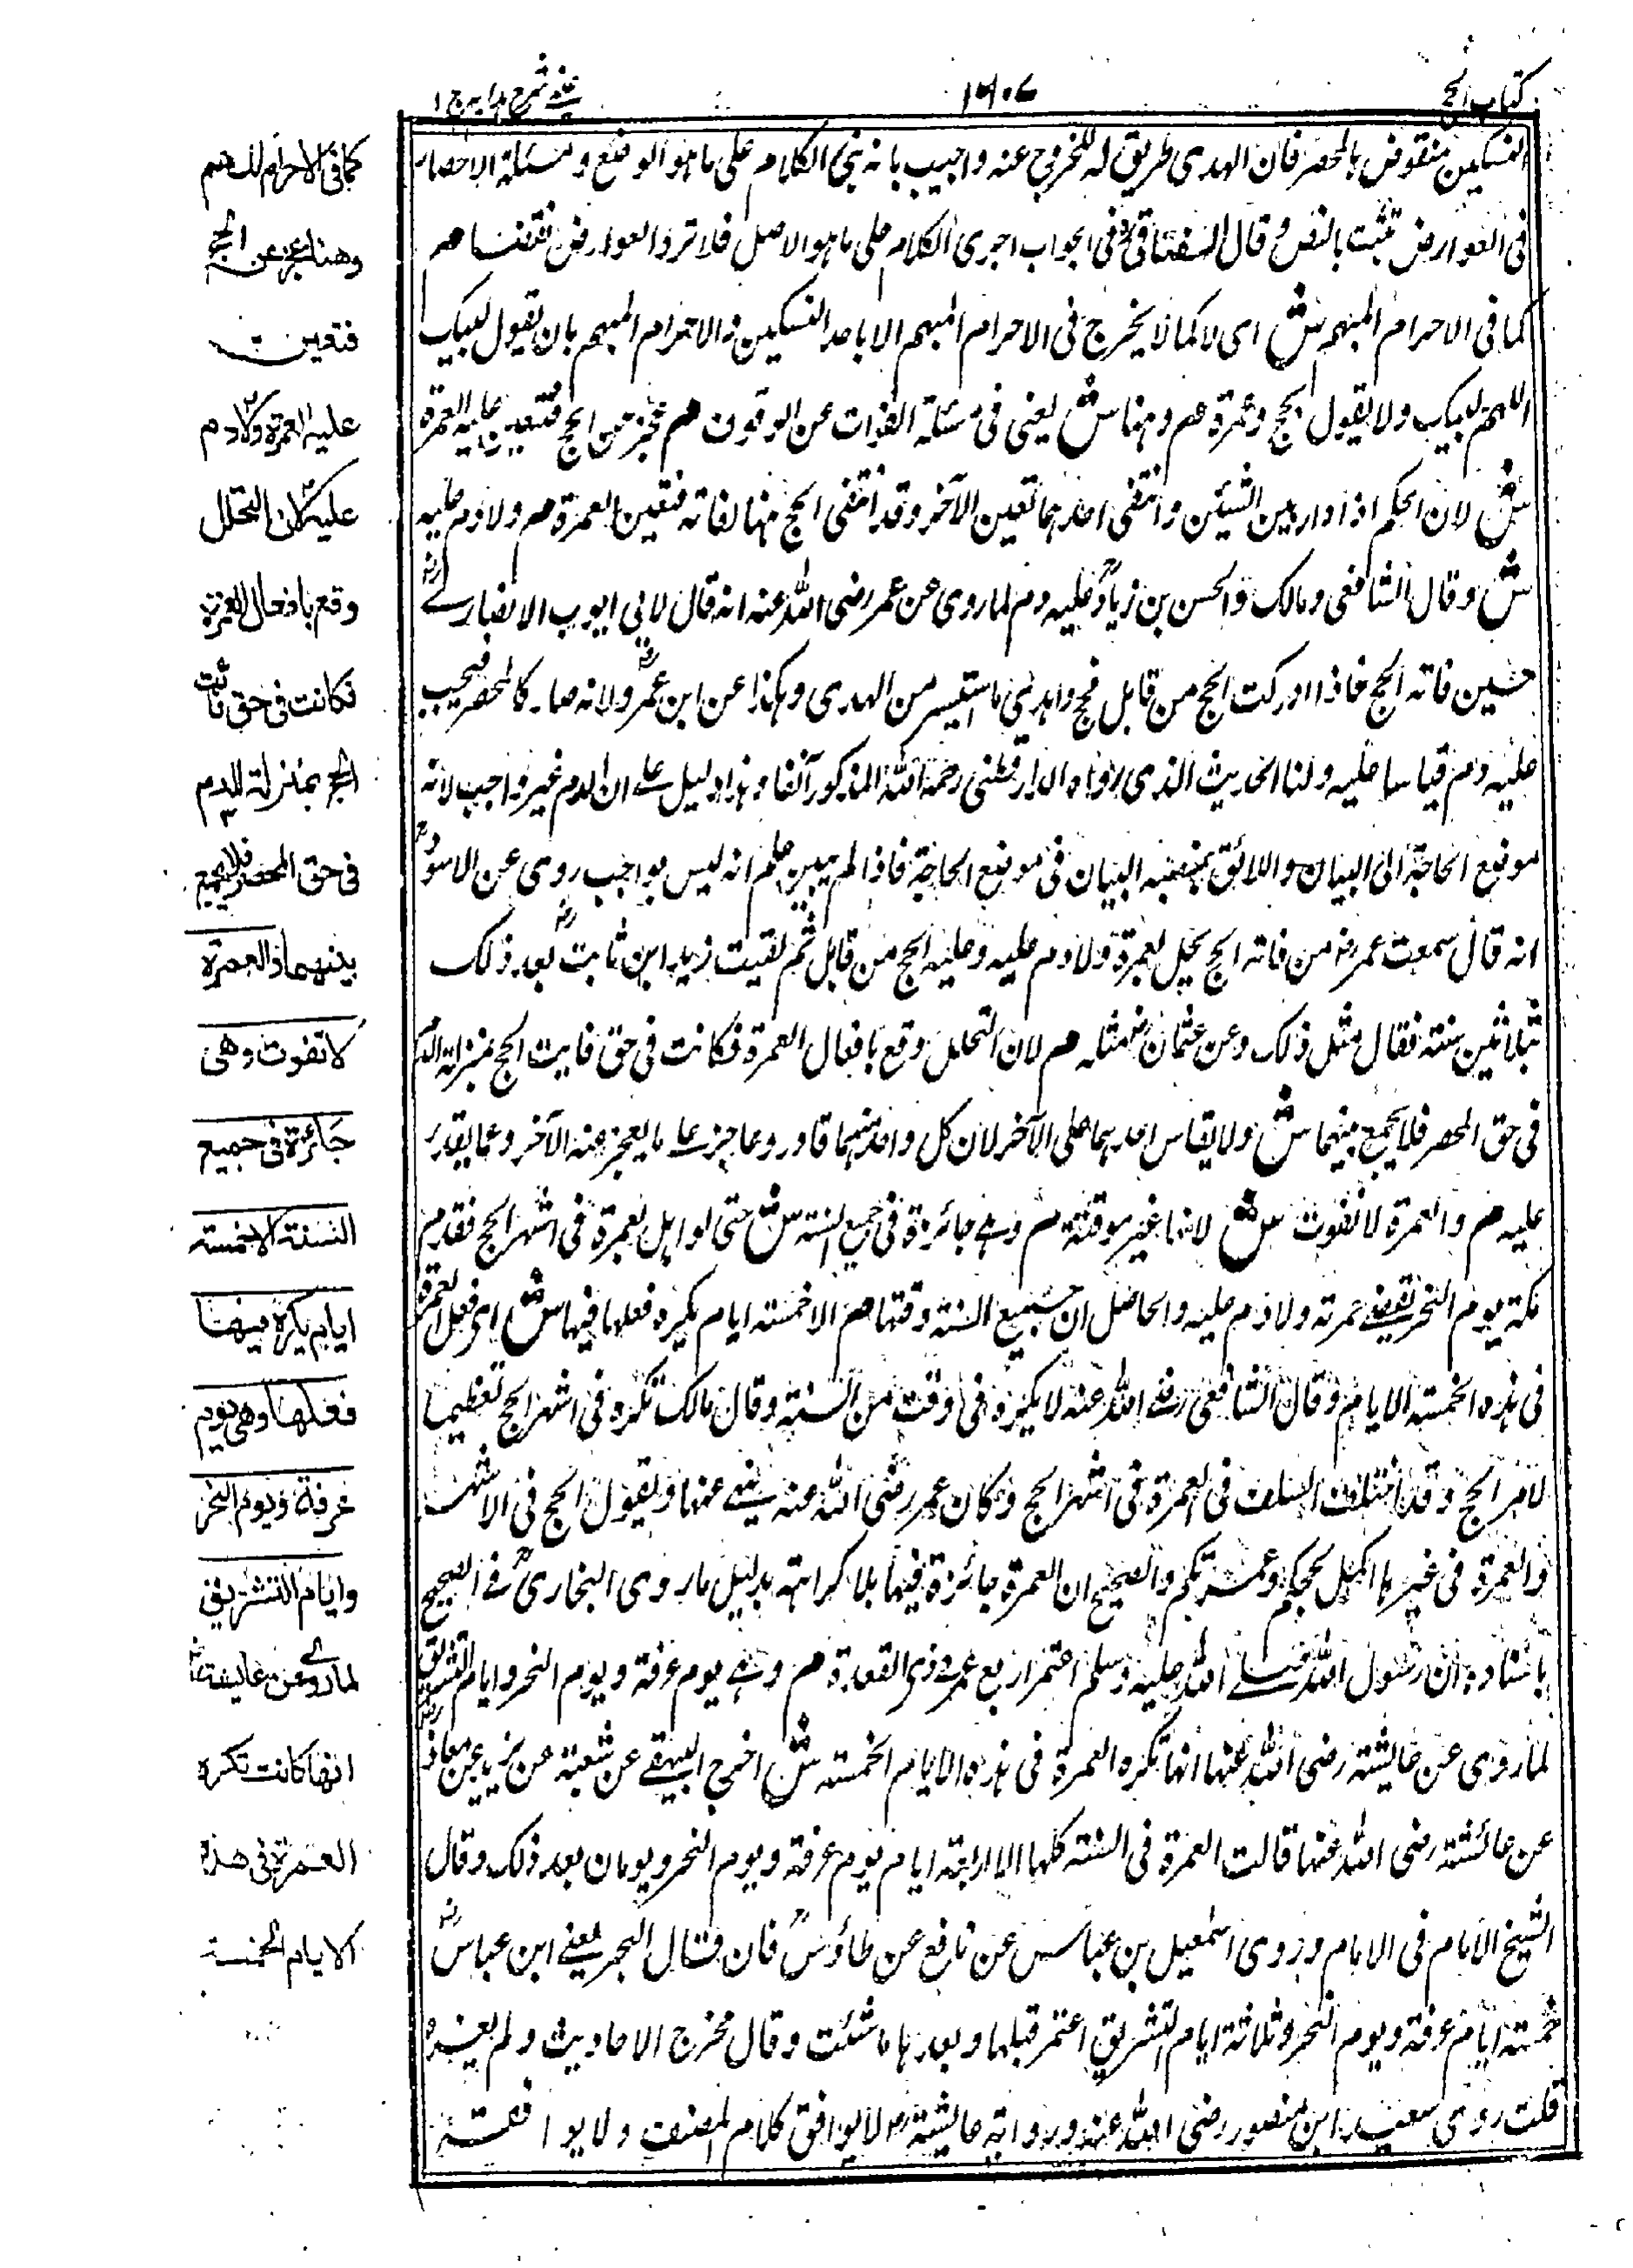 كتاب الحج
عينى شرح هدايه ج ١
النسكين منقوض بالمحصر فان الهدى طريق له للخروج عنه واجيب بانه بنى الكلام على ما هو الوضع ومسئلة الاحصار
فى العوارض تثبت بالنص وقال السغناقى فى الجواب اجرى الكلام على ما هو الاصل فلا ترد العوارض نقضا م
كما فى الاحرام المبهم ش اى لا كما لا يخرج فى الاحرام المبهم الا باحد النسكين والاحرام المبهم بان يقول لبيك
اللهم لبيك ولا يقول بحج وعمرة م وهنا ش يعنى فى مسئلة الفوات عن الوقوف م عجز عن الحج فتعين عليه العمرة
ش لان الحكم اذا دار بين الشيئين وانتفى احدهما تعين الآخر وقد انتفى الحج هنا لفاته فتعين العمرة م ولا دم عليه
ش وقال الشافعى ومالك والحسن بن زياد عليه دم لما روى عن عمر رضى الله عنه انه قال لابى ايوب الانصارى
حين فاته الحج فاذا ادركت الحج من قابل فحج واهدى ما استيسر من الهدى وهكذا عن ابن عمر ولانه صار كالمحصر فيجب
عليه دم قياسا عليه ولنا الحديث الذى رواه الدارقطنى رحمه الله المذكور آنفا وهذا دليل على ان الدم غير واجب لانه
موضع الحاجة الى البيان واللائق بمنصبه البيان فى موضع الحاجة فاذا لم يبين علم انه ليس بواجب روى عن الاسود
انه قال سمعت عمر من فاته الحج يحل بعمرة ولا دم عليه وعليه الحج من قابل ثم لقيت زيد ابن ثابت بعد ذلك
بثلاثين سنة فقال مثل ذلك وعن عثمان مثله م لان التحلل وقع بافعال العمرة فكانت فى حق فايت الحج بمنزلة الدم
فى حق المحصر فلا يجمع بينهما ش ولا يقاس احدهما على الآخر لان كل واحد منهما قادر وعاجز على ما يعجز عنه الآخر وعما يقدر
عليه م والعمرة لا تفوت ش لانها غير موقتة م وهى جائزة فى جميع السنة ش حتى لو اهل بعمرة فى اشهر الحج فقدم
مكة يوم النحر يقضى عمرته ولا دم عليه والحاصل ان جميع السنة وقتها م الا خمسة ايام يكره فعلها فيها ش اى فعل العمرة
فى هذه الخمسة الايام وقال الشافعى رضى الله عنه لا يكره فى وقت من السنة وقال مالك تكره فى اشهر الحج تعظيما
لامر الحج وقد اختلف السلف فى العمرة فى اشهر الحج وكان عمر رضى الله عنه ينهى عنها ويقول الحج فى الاشهر
والعمرة فى غيرها اكمل لحجكم وعمرتكم والصحيح ان العمرة جائزة فيها بلا كراهة بدليل ما روى البخارى فى الصحيح
باسناده ان رسول الله صلى الله عليه وسلم اعتمر اربع عمر فى ذى القعدة م وهى يوم عرفة ويوم النحر وايام التشريق
لما روى عن عايشة رضى الله عنها انها تكره العمرة فى هذه الايام الخمسة ش اخرج البيهقى عن شعبة عن يزيد عن معاذ
عن عائشة رضى الله عنها قالت العمرة فى السنة كلها الا اربعة ايام يوم عرفة ويوم النحر ويومان بعد ذلك وقال
الشيخ الامام فى الامام وروى اسمعيل بن عباس عن نافع عن طاؤس فان قال البحر يعنى ابن عباس
خمسة ايام عرفة ويوم النحر وثلاثة ايام التشريق اعتمر قبلها وبعدها ما شئت وقال مخرج الاحاديث ولم يعزه
قلت روى سعيد ابن منصور رضى الله عنه ورواية عايشة لا يوافق كلام المصنف ولا يوافقه
كما فى الاحرام المبهم
وهنا عجز عن الحج
فتعين
عليه العمرة ولا دم
عليه لان التحلل
وقع بافعال العمرة
فكانت فى حق فائت
الحج بمنزلة الدم
فى حق المحصر فلا يجمع
بينهما والعمرة
لا تفوت وهى
جائزة فى جميع
السنة الا خمسة
ايام يكره فيها
فعلها وهى يوم
عرفة ويوم النحر
وايام التشريق
لما روى عن عايشة
انها كانت تكره
العمرة فى هذه
الايام الخمسة